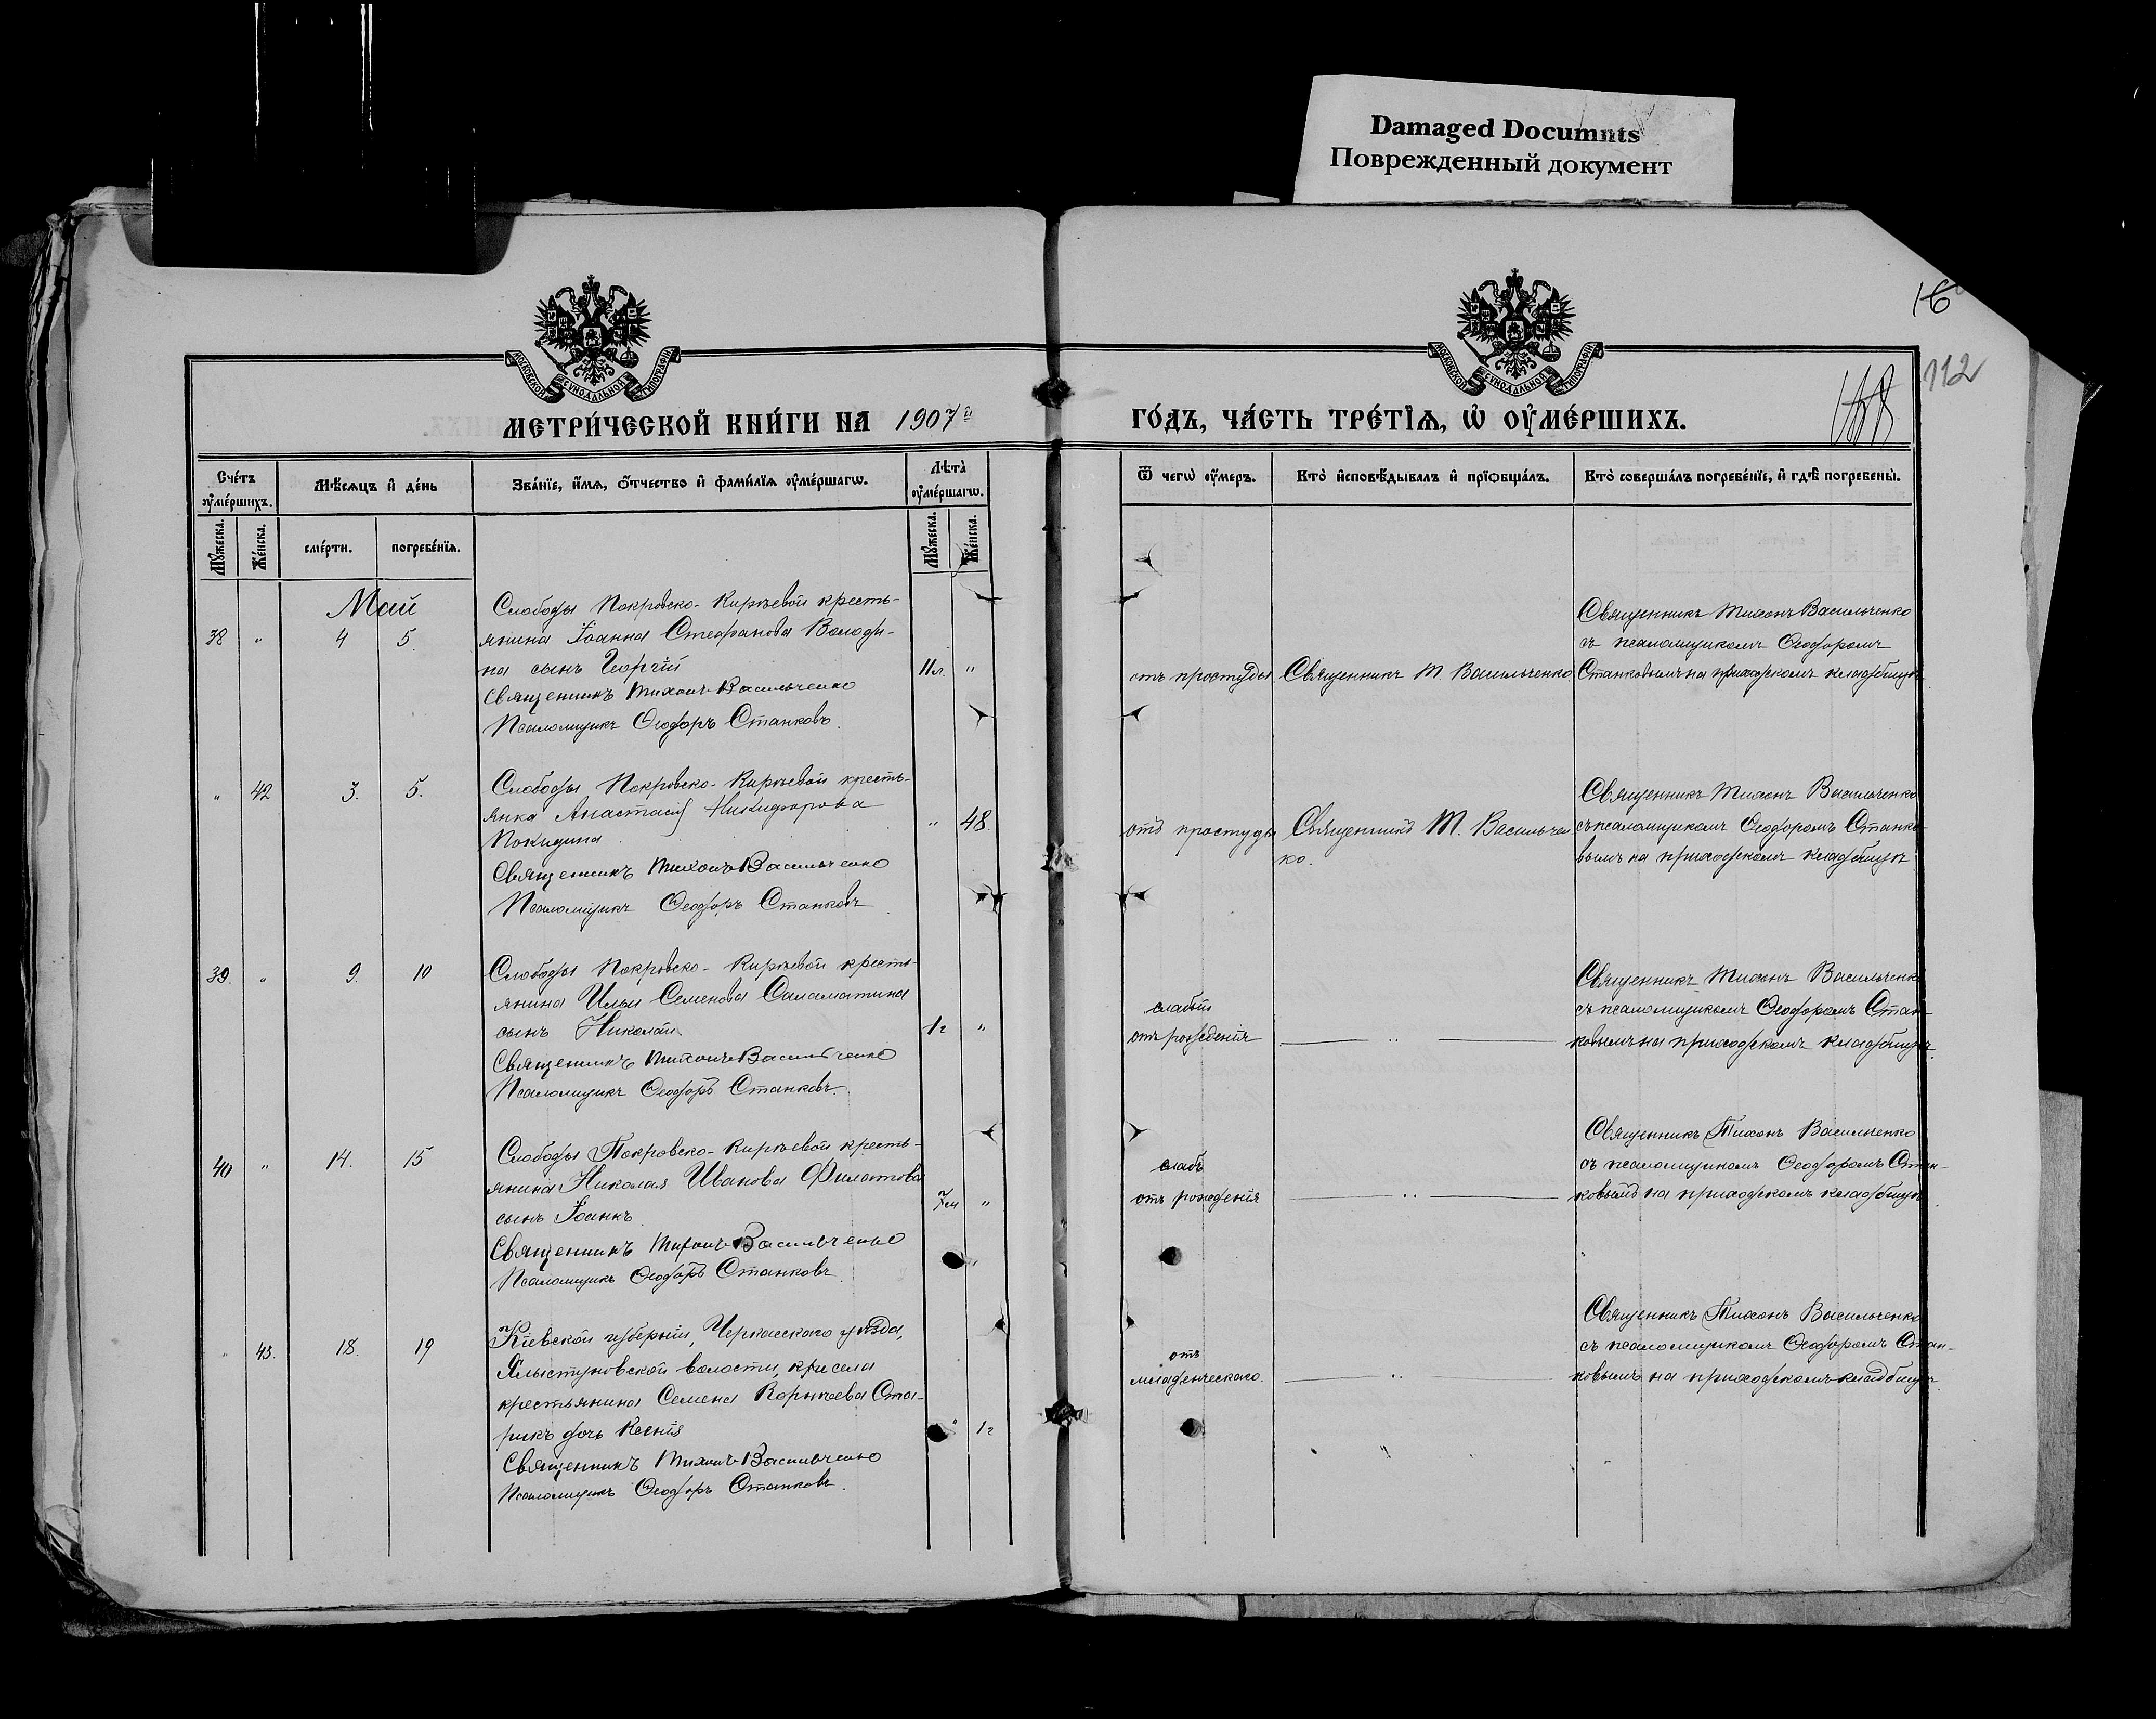 Damaged Documnts
Поврежденный документ
16
112
МОСКОВСКОЙ СѴНОДАЛЬНОЙ ТИПОГРАФІИ
МОСКОВСКОЙ СѴНОДАЛЬНОЙ ТИПОГРАФІИ
МЕТРИ́ЧЕСКОЙ КНИ́ГИ НА 1907й ГО́ДЪ, ЧА́СТЬ ТРЕ́ТЇѦ, Ѡ҆ ОУ҆МЕ́РШИХЪ.
Сче́тъ оу҆ме́ршихъ.
Мѣ́сяцъ и҆ де́нь
Зва́нїе, и҆́мѧ, ѻ҆́тчество и҆ фами́лїѧ оу҆ме́ршагѡ.
Лѣта̀ оу҆ме́ршагѡ.
Ѿ чегѡ̀ оу҆́меръ.
Кто̀ и҆сповѣ́дывалъ и҆ прїѡбща́лъ.
Кто̀ соверша́лъ погребе́нїе, и҆ гдѣ̀ погребены̀.
Мꙋ́жеска.
Же́нска.
сме́рти.
погребе́нїѧ.
Мꙋ́жеска.
Же́нска.
Май
38 " 4 5.
Слободы Покровско-Киреевой кресть-
янина Іоанна Стефанова Володи-
на сынъ Георгій
11 л. "
Священникъ Тихонъ Васильченко
Псаломщикъ Ѳеодоръ Станковъ.
отъ простуды
Священникъ Т. Васильченко
Священникъ Тихонъ Васильченко
съ псаломщикомъ Ѳеодоромъ
Станковымъ на приходскомъ кладбищѣ
" 42 3. 5.
Слободы Покровско-Киреевой кресть-
янка Анастасія Никифорова
Покидина
" 48.
Священникъ Тихонъ Васильченко
Псаломщикъ Ѳеодоръ Станковъ
отъ простуды
Священникъ Т. Васильчен
ко.
Священникъ Тихонъ Васильченко
съ псаломщикомъ Ѳеодоромъ Станко-
вымъ на приходскомъ кладбищѣ
39. " 9. 10
Слободы Покровско-Киреевой кресть-
янина Ильи Семенова Саламатина
сынъ Николай
1 г "
Священникъ Тихонъ Васильченко
Псаломщикъ Ѳеодоръ Станковъ.
слабый
отъ рожденія
"
Священникъ Тихонъ Васильченко
съ псаломщикомъ Ѳеодоромъ Стан-
ковымъ на приходскомъ кладбищѣ
40 " 14. 15
Слободы Покровско-Киреевой кресть-
янина Николая Иванова Филатова
сынъ Іоаннъ
"
Священникъ Тихонъ Васильченко
Псаломщикъ Ѳеодоръ Станковъ.
слабъ
отъ рожденія
"
Священникъ Тихонъ Васильченко
съ псаломщикомъ Ѳеодоромъ Стан-
ковымъ на приходскомъ кладбищѣ
" 43. 18. 19
Кіевской губерніи, Черкасскаго уѣзда,
волости, села
крестьянина Семена Ста-
рикъ дочь Ксенія
" 1 г
Священникъ Тихонъ Васильченко
Псаломщикъ Ѳеодоръ Станковъ.
отъ
младенческаго
"
Священникъ Тихонъ Васильченко
съ псаломщикомъ Ѳеодоромъ Стан-
ковымъ на приходскомъ кладбищѣ